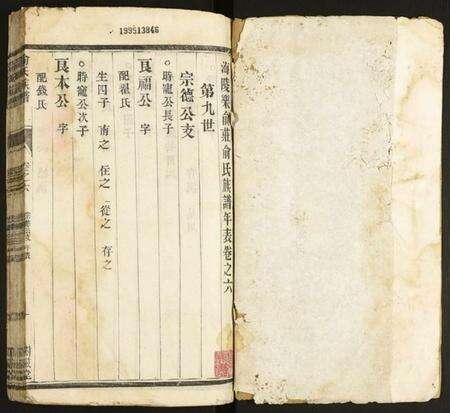 199513846
海陵樂俞莊俞氏族譜年表卷之六
第九世
宗德公支
○時寵公長子
良福公 字
配翟氏
生四子 甫之 在之 從之 存之
○時寵公次子
良本公 字
配錢氏